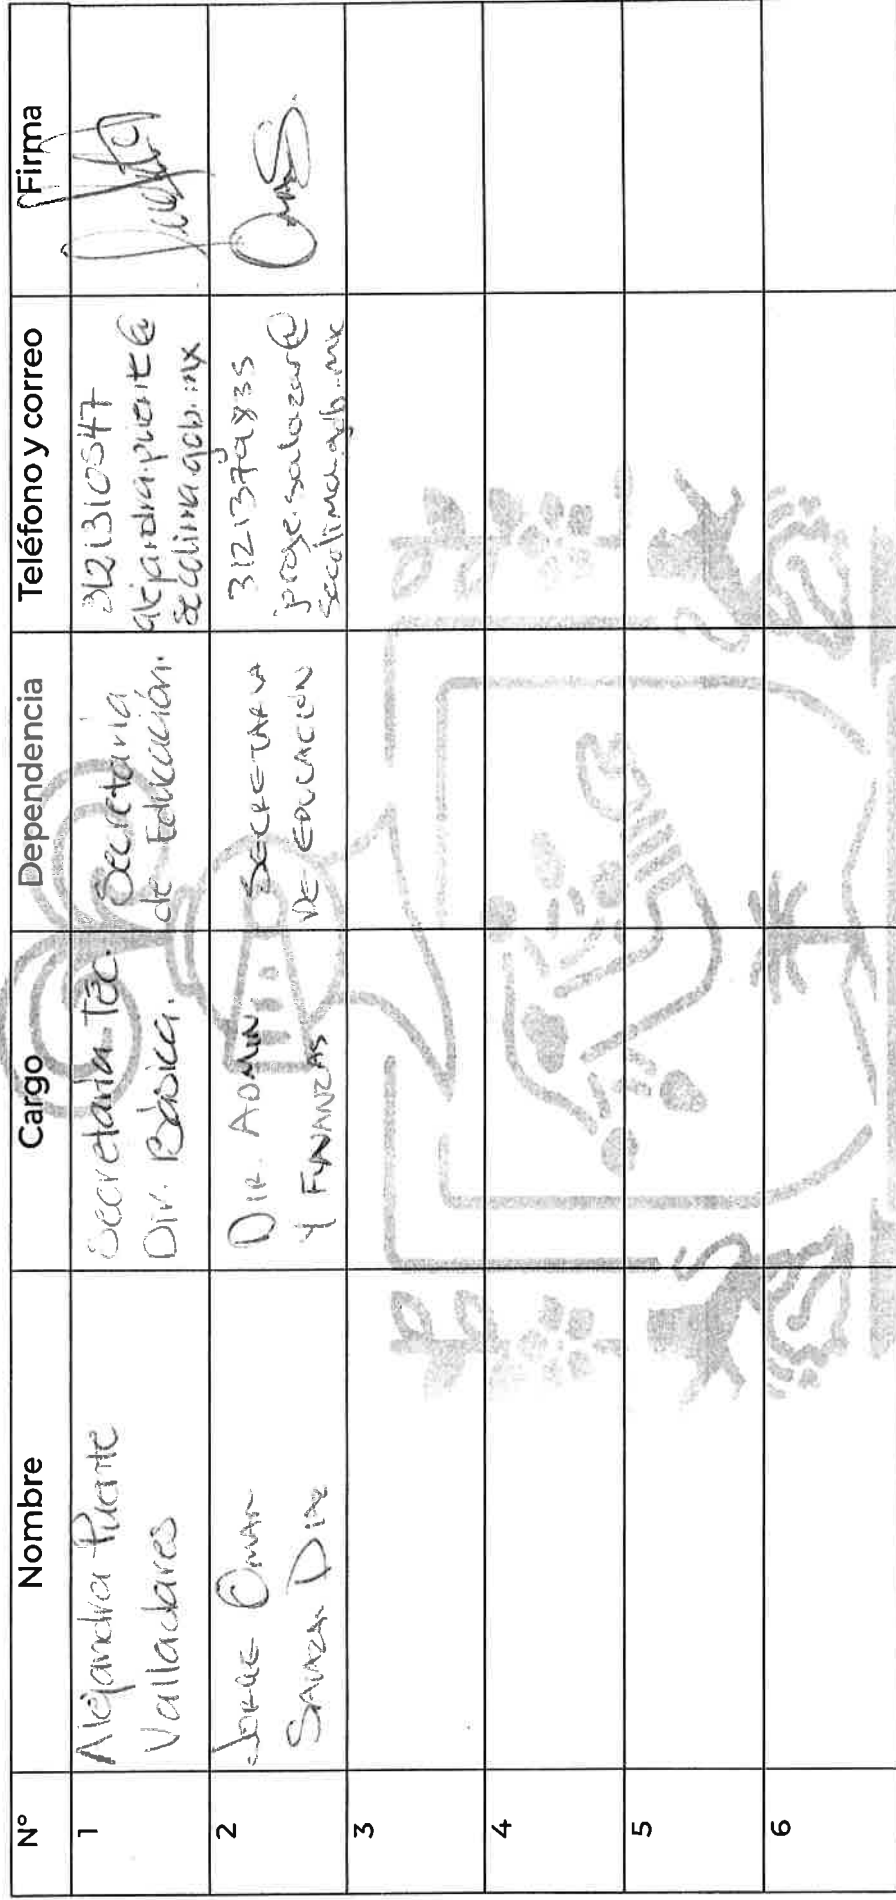 N° Nombre Cargo Dependencia Teléfono y correo Firma
1
Alejandra Puente
Valladares
Secretaria Téc.
Dir. Básica.
Secretaría
de Educación.
3121310547
alejandra.puente@
secolima.gob.mx
2
JORGE OMAR
SALAZAR DIAZ
DIR. ADMIN.
Y FINANZAS
SECRETARIA
DE EDUCACIÓN
3121379835
jorge.salazar@
secolima.gob.mx
3
4
5
6